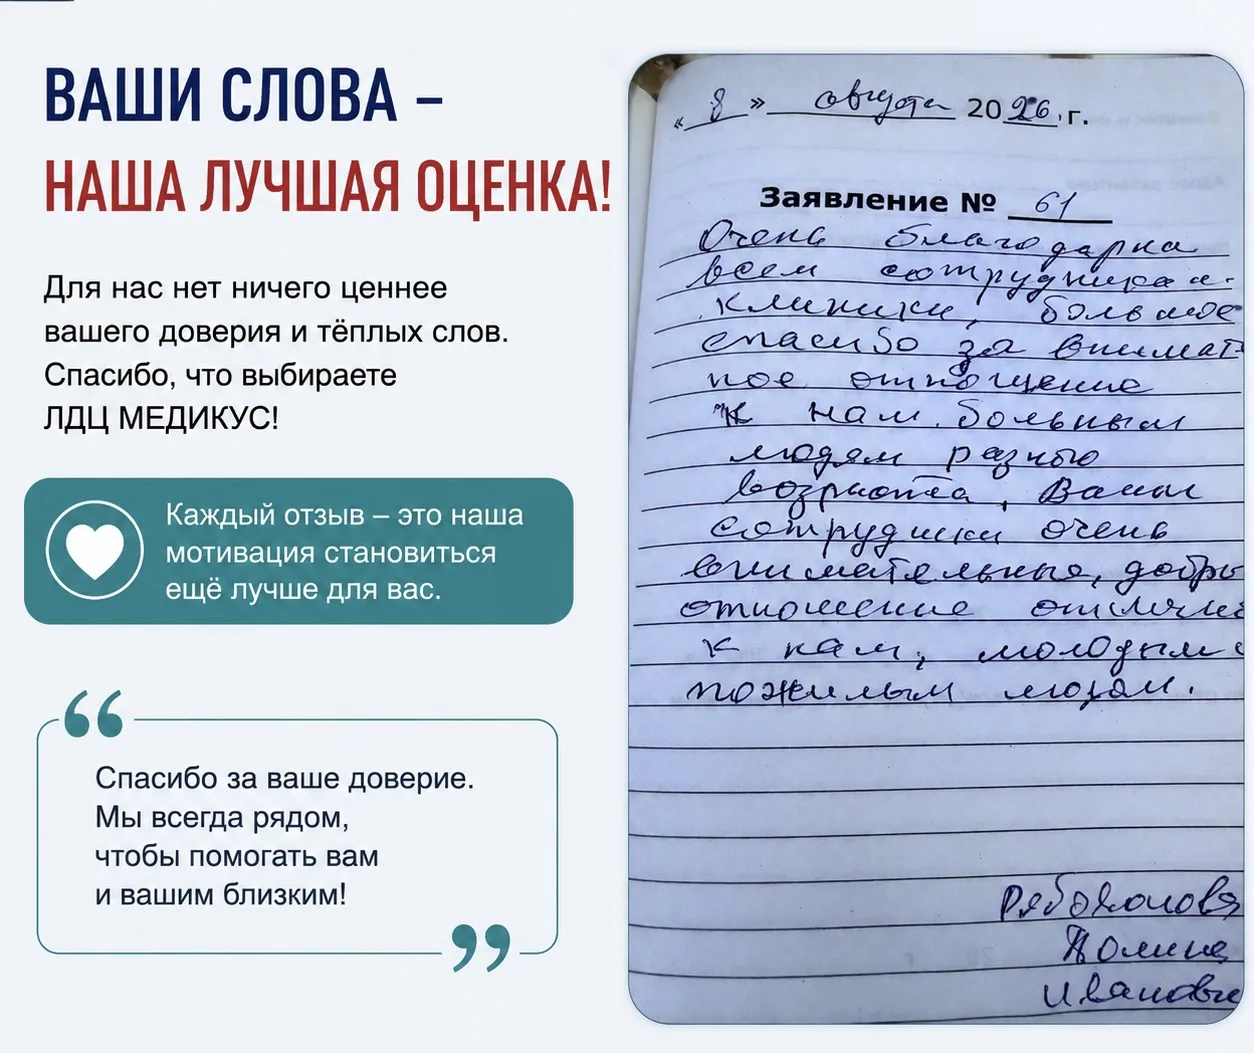 ВАШИ СЛОВА –
НАША ЛУЧШАЯ ОЦЕНКА!
Для нас нет ничего ценнее
вашего доверия и тёплых слов.
Спасибо, что выбираете
ЛДЦ МЕДИКУС!
Каждый отзыв – это наша
мотивация становиться
ещё лучше для вас.
“
Спасибо за ваше доверие.
Мы всегда рядом,
чтобы помогать вам
и вашим близким!
”
« 8 » августа 2026 г.
Заявление № 61
Очень благодарна
всем сотрудника
клиники, большое
спасибо за внимат
ное отношение
к нам больным
людям разного
возраста, Ваши
сотрудники очень
внимательные, добры
отношение отличн
к нам, молодым
пожилым людям.
Полина
Ивановна